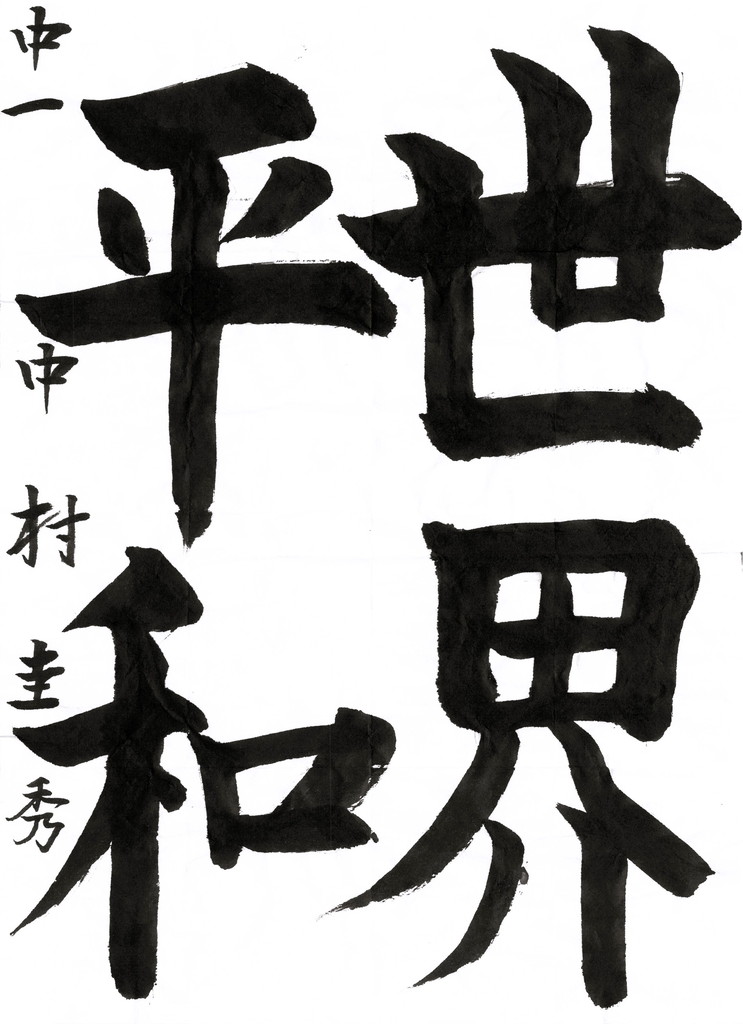 世界
平和
中一 中村圭秀